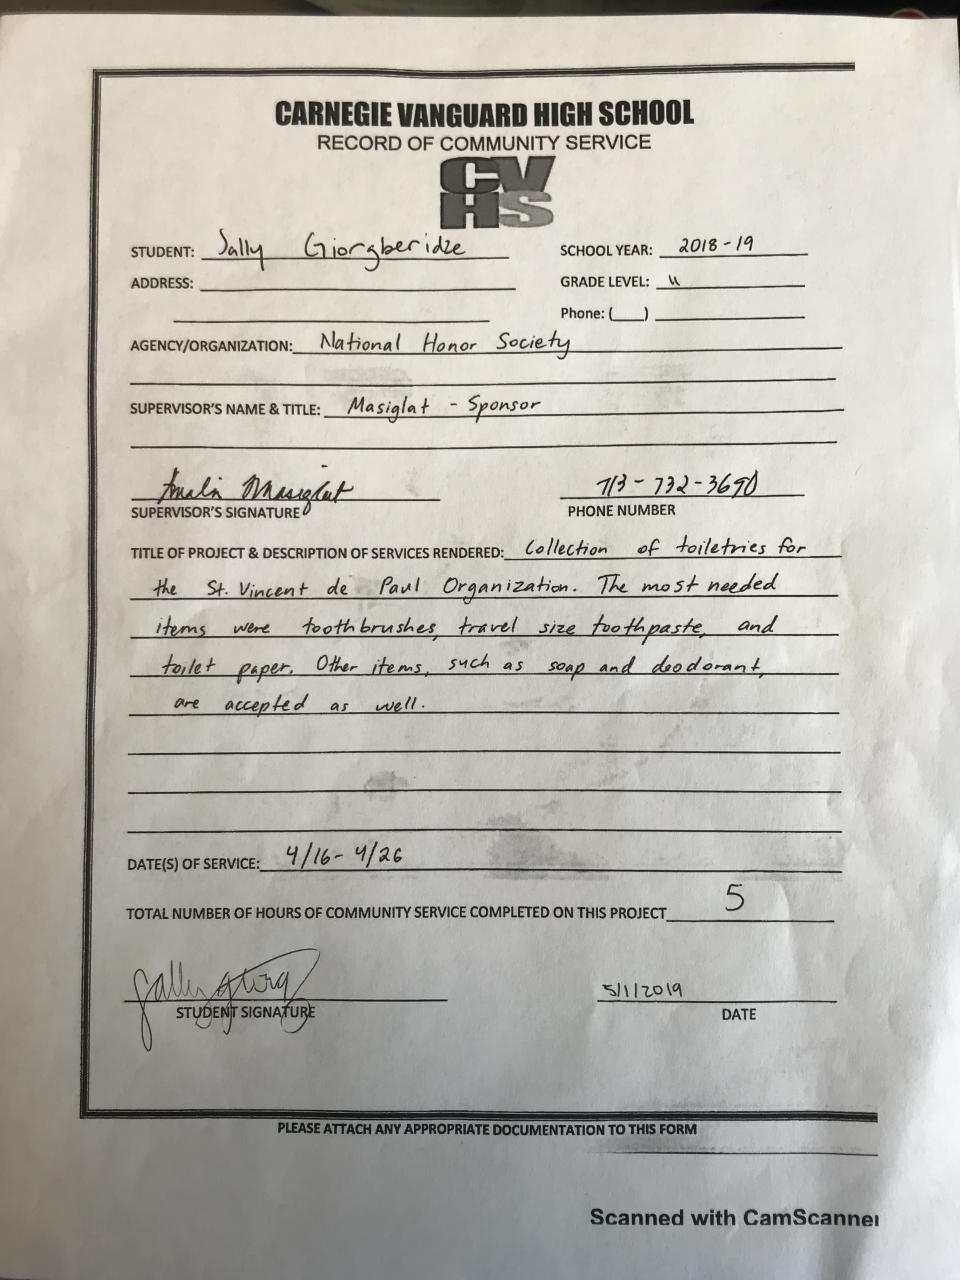 CARNEGIE VANGUARD HIGH SCHOOL
RECORD OF COMMUNITY SERVICE
CV
HS
STUDENT: Sally Giorgberidze SCHOOL YEAR: 2018-19
ADDRESS: GRADE LEVEL: 11
Phone: (___)
AGENCY/ORGANIZATION: National Honor Society
SUPERVISOR'S NAME & TITLE: Masiglat - Sponsor
Masiglat 713-732-3690
SUPERVISOR'S SIGNATURE PHONE NUMBER
TITLE OF PROJECT & DESCRIPTION OF SERVICES RENDERED: Collection of toiletries for
the St. Vincent de Paul Organization. The most needed
items were toothbrushes, travel size toothpaste, and
toilet paper. Other items, such as soap and deodorant,
are accepted as well.
DATE(S) OF SERVICE: 4/16-4/26
TOTAL NUMBER OF HOURS OF COMMUNITY SERVICE COMPLETED ON THIS PROJECT 5
Sally giorg 5/1/2019
STUDENT SIGNATURE DATE
PLEASE ATTACH ANY APPROPRIATE DOCUMENTATION TO THIS FORM
Scanned with CamScanner